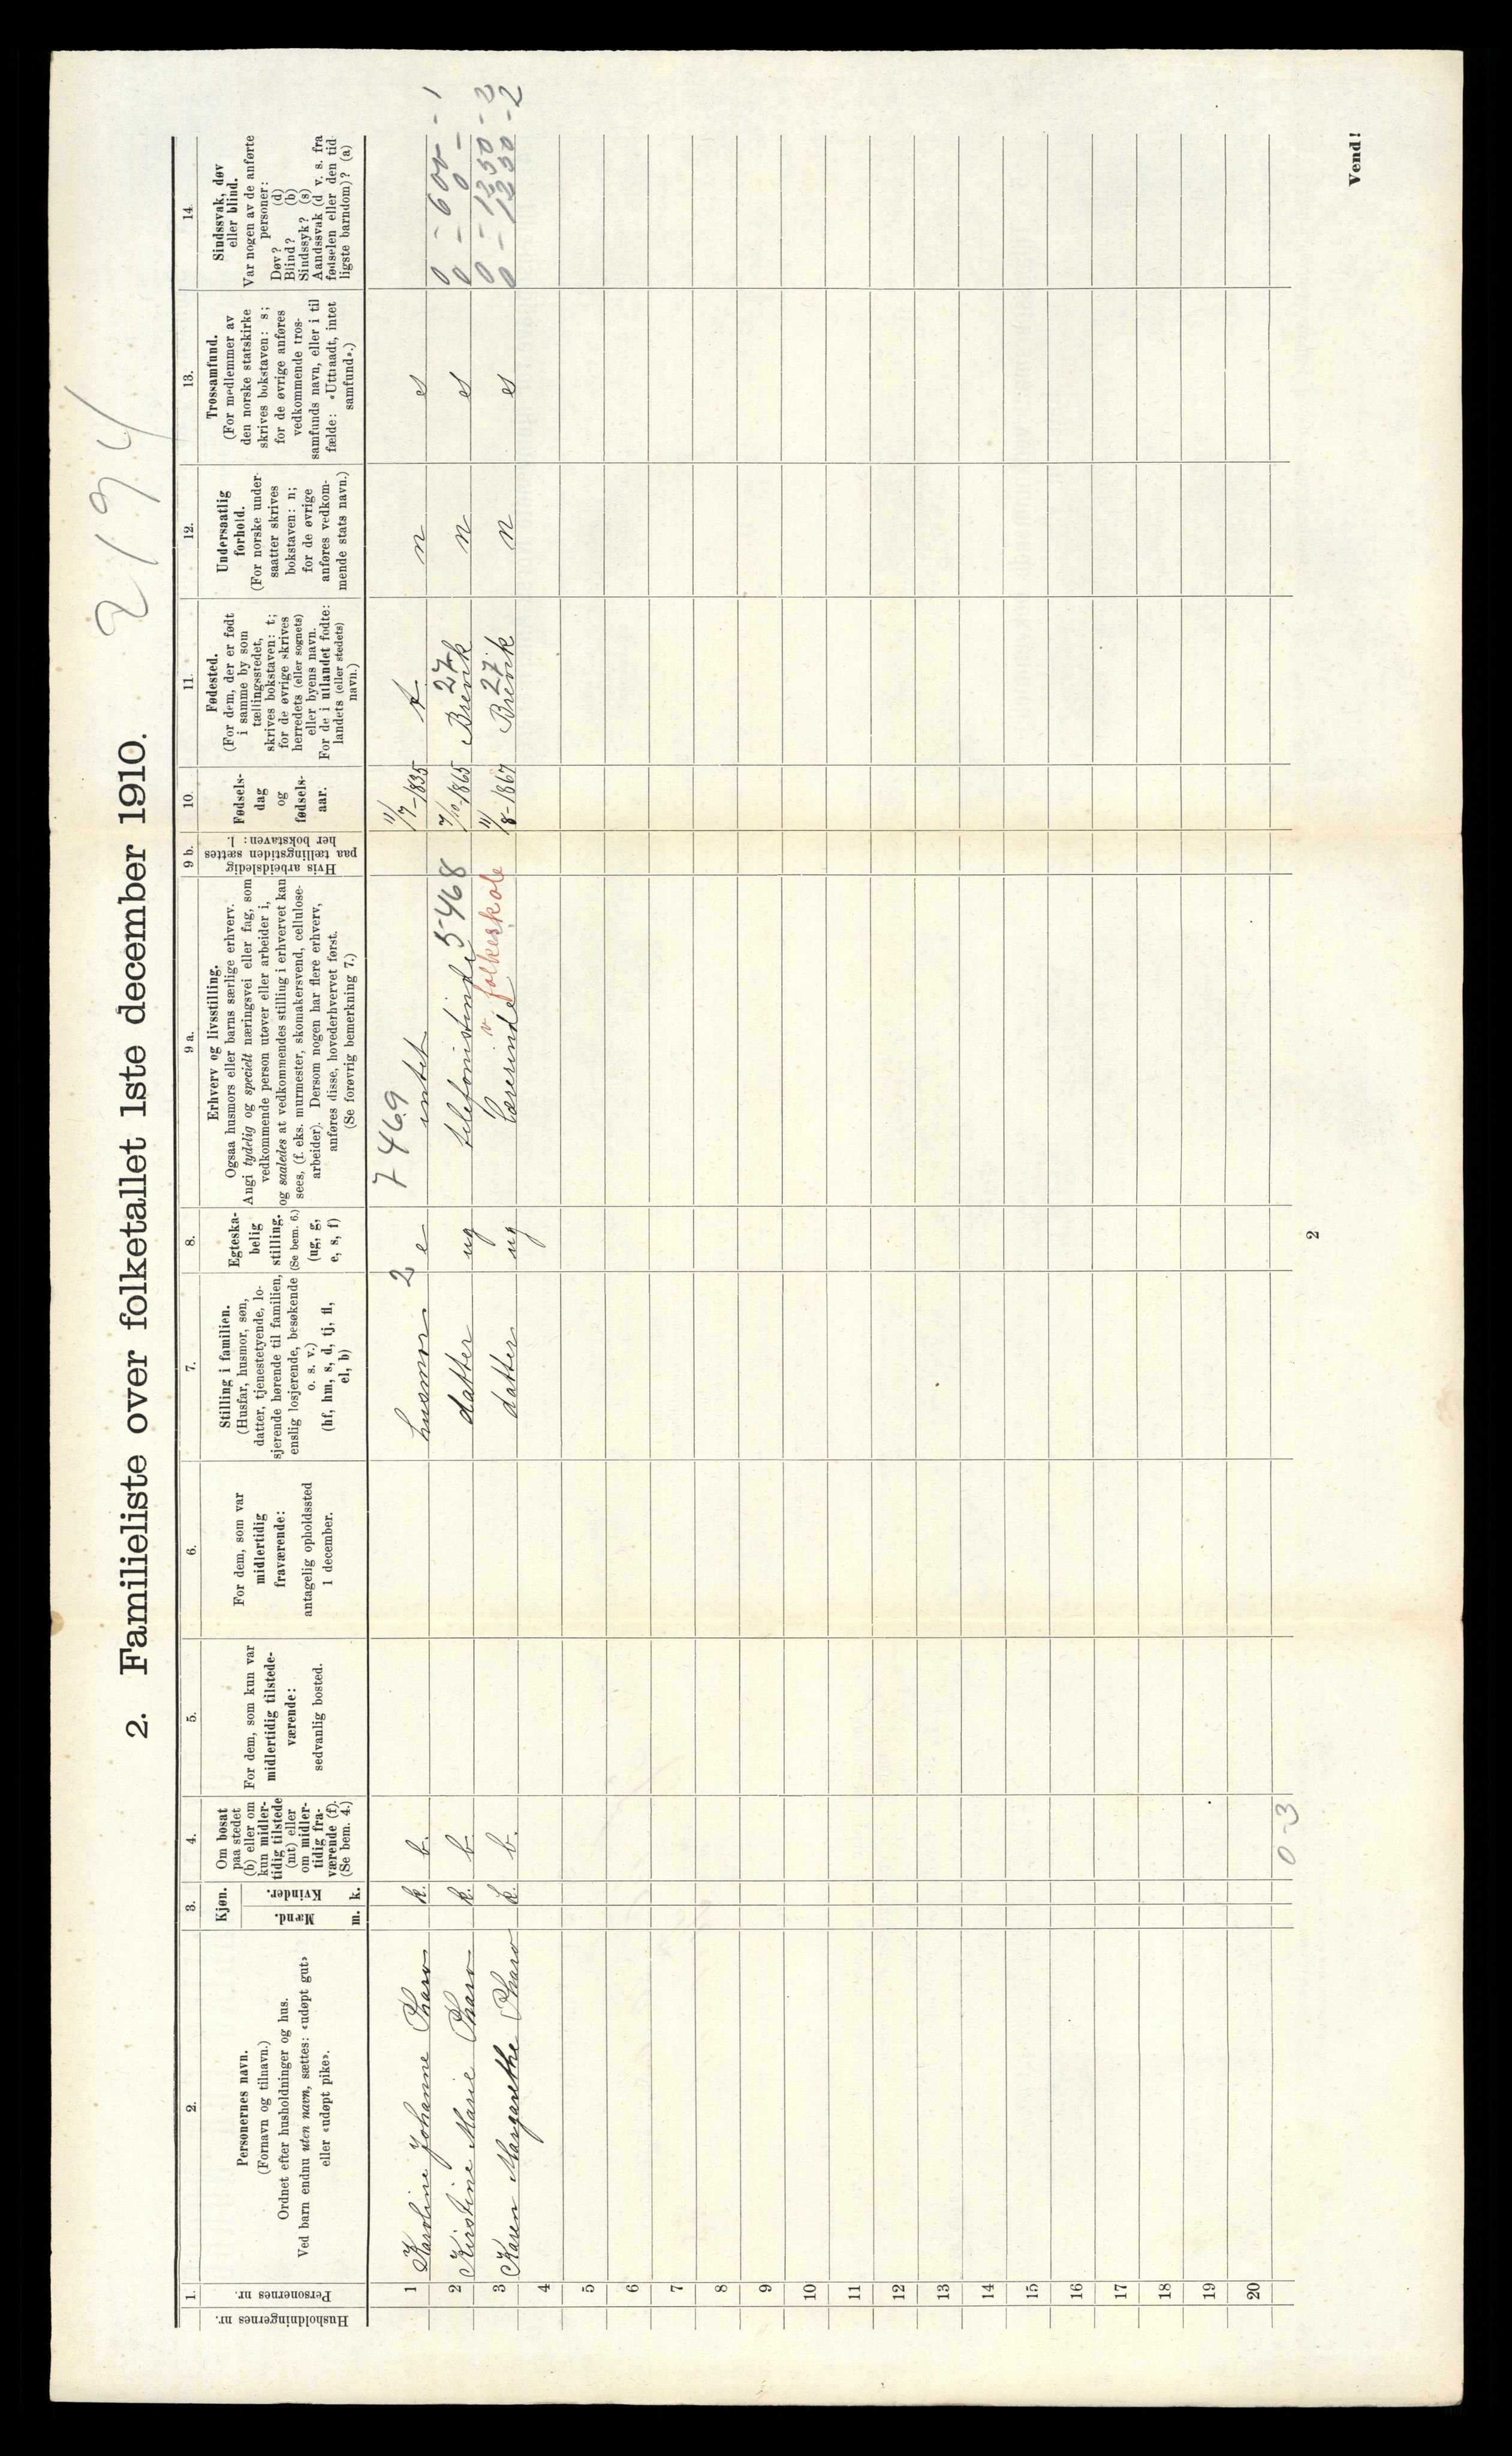 2194
2. Familieliste over folketallet 1ste december 1910.
Husholdningernes nr.
1.
Personernes nr.
2.
Personernes navn.
(Fornavn og tilnavn.)
Ordnet efter husholdninger og hus.
Ved barn endnu uten navn, sættes: «udøpt gut»
eller «udøpt pike».
3.
Kjøn.
Mænd.
Kvinder.
m. k.
4.
Om bosat
paa stedet
(b) eller om
kun midler-
tidig tilstede
(mt) eller
om midler-
tidig fra-
værende (f).
(Se bem. 4.)
5.
For dem, som kun var
midlertidig tilstede-
værende:
sedvanlig bosted.
6.
For dem, som var
midlertidig
fraværende:
antagelig opholdssted
1 december.
7.
Stilling i familien.
(Husfar, husmor, søn,
datter, tjenestetyende, lo-
sjerende hørende til familien,
enslig losjerende, besøkende
o. s. v.)
(hf, hm, s, d, tj, fl,
el, b)
8.
Egteska-
belig
stilling.
(Se bem. 6.)
(ug, g,
e, s, f)
9 a.
Erhverv og livsstilling.
Ogsaa husmors eller barns særlige erhverv.
Angi tydelig og specielt næringsvei eller fag, som
vedkommende person utøver eller arbeider i,
og saaledes at vedkommendes stilling i erhvervet kan
sees, (f. eks. murmester, skomakersvend, cellulose-
arbeider). Dersom nogen har flere erhverv,
anføres disse, hovederhvervet først.
(Se forøvrig bemerkning 7.)
9 b.
Hvis arbeidsledig
paa tællingstiden sættes
her bokstaven: l.
10.
Fødsels-
dag
og
fødsels-
aar.
11.
Fødested.
(For dem, der er født
i samme by som
tællingsstedet,
skrives bokstaven: t;
for de øvrige skrives
herredets (eller sognets)
eller byens navn.
For de i utlandet fødte:
landets (eller stedets)
navn.)
12.
Undersaatlig
forhold.
(For norske under-
saatter skrives
bokstaven: n;
for de øvrige
anføres vedkom-
mende stats navn.)
13.
Trossamfund.
(For medlemmer av
den norske statskirke
skrives bokstaven: s;
for de øvrige anføres
vedkommende tros-
samfunds navn, eller i til
fælde: «Uttraadt, intet
samfund».)
14.
Sindssvak, døv
eller blind.
Var nogen av de anførte
personer:
Døv? (d)
Blind? (b)
Sindssyk? (s)
Aandssvak (d v. s. fra
fødselen eller den tid-
ligste barndom)? (a)
7469
1 Karoline Johanne Tharo k. b. husmor 2 e intet 11/7-1835 t. n s 0 - 600 - 1
2 Kirstine Marie Tharo k. b datter ug telefonistinde 5468 7/10-1865 Brevik 27 n s 0 - 0 -
v. folkeskole
3 Karen Margarethe Tharo k. b. datter ug Lærerinde 11/8-1867 Brevik 27 n s 0 - 1350 - 2
0 - 1350 - 2
4
5
6
7
8
9
10
11
12
13
14
15
16
17
18
19
20
0-3
2
Vend!